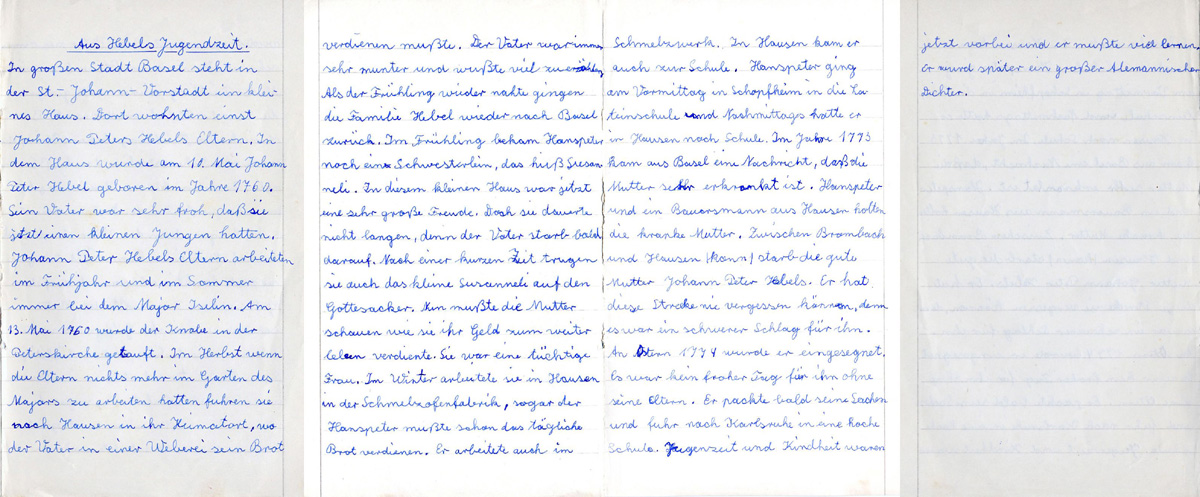 Aus Hebels Jugendzeit.
In großen Stadt Basel steht in
der St.-Johann-Vorstadt ein klei-
nes Haus. Dort wohnten einst
Johann Peters Hebels Eltern. In
dem Haus wurde am 10. Mai Johann
Peter Hebel geboren im Jahre 1760.
Sein Vater war sehr froh, daß sie
jetzt einen kleinen Jungen hatten.
Johann Peter Hebels Eltern arbeiteten
im Frühjahr und im Sommer
immer bei dem Major Iselin. Am
13. Mai 1760 wurde der Knabe in der
Peterskirche getauft. Im Herbst wenn
die Eltern nichts mehr im Garten des
Majors zu arbeiten hatten fuhren sie
nach Hausen in ihr Heimatort, wo
der Vater in einer Weberei sein Brot
verdienen mußte. Der Vater war immer
sehr munter und wußte viel zu erzählen.
Als der Frühling wieder nahte gingen
die Familie Hebel wieder nach Basel
zurück. Im Frühling bekam Hanspeter
noch ein Schwesterlein, das hieß Susan
neli. In diesem kleinen Haus war jetzt
eine sehr große Freude. Doch sie dauerte
nicht langen, denn der Vater starb bald
darauf. Nach einer kurzen Zeit trugen
sie auch das kleine Susanneli auf den
Gottesacker. Nun mußte die Mutter
schauen wie sie ihr Geld zum weiter
leben verdiente. Sie war eine tüchtige
Frau. Im Winter arbeitete sie in Hausen
in der Schmelzofenfabrik, sogar der
Hanspeter mußte schon das tägliche
Brot verdienen. Er arbeitete auch im
Schmelzwerk. In Hausen kam er
auch zur Schule. Hanspeter ging
am Vormittag in Schopfheim in die La
teinschule und Nachmittags hatte er
in Hausen noch Schule. Im Jahre 1773
kam aus Basel eine Nachricht, daß die
Mutter sehr erkrankt ist. Hanspeter
und ein Bauersmann aus Hausen holten
die kranke Mutter. Zwischen Brombach
und Hausen /kann/ starb die gute
Mutter Johann Peter Hebels. Er hat
diese Straße nie vergessen können, denn
es war ein schwerer Schlag für ihn.
An Ostern 1774 wurde er eingesegnet.
Es war kein froher Tag für ihn ohne
seine Eltern. Er packte bald seine Sachen
und fuhr nach Karlsruhe in eine hohe
Schule. Jugenzeit und Kindheit waren
jetzt vorbei und er mußte viel lernen.
Er wurd später ein großer Alemannischer
Dichter.